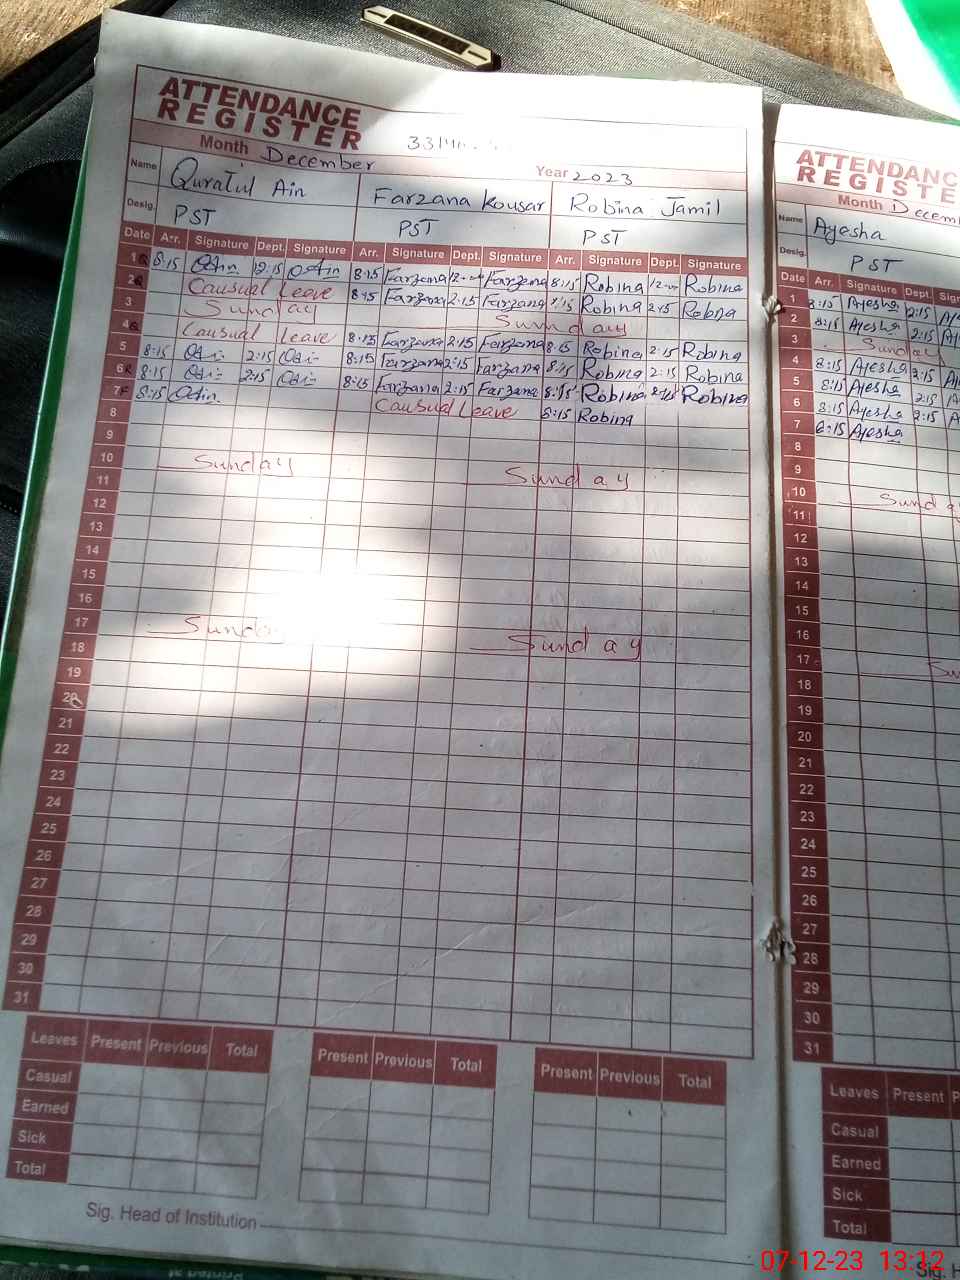 ATTENDANCE
REGISTER
Month December Year 2023
Name Quratul Ain Farzana Kousar Robina Jamil
Desig. PST PST PST
Date Arr. Signature Dept. Signature Arr. Signature Dept. Signature Arr. Signature Dept. Signature
1 8:15 12:15 8:15 Farzana Farzana 8:15 Robina Robina
2 Causual Leave 8:15 Farzana 2:15 Farzana 8:15 Robina 2:15 Robina
3 Sunday Sunday
4 Causual Leave 8:15 Farzana 2:15 Farzana 8:15 Robina 2:15 Robina
5 8:15 2:15 8:15 Farzana 2:15 Farzana 8:15 Robina 2:15 Robina
6 8:15 2:15 8:15 Farzana 2:15 Farzana 8:15 Robina 2:15 Robina
7 8:15 Causual Leave 8:15 Robina
8
9
10 Sunday Sunday
11
12
13
14
15
16
17 Sunday Sunday
18
19
20
21
22
23
24
25
26
27
28
29
30
31
Leaves Present Previous Total Present Previous Total Present Previous Total
Casual
Earned
Sick
Total
Sig. Head of Institution
ATTENDANC
REGISTE
Month Decem
Name Ayesha
Desig. PST
Date Arr. Signature Dept. Sig
1 8:15 Ayesha 2:15
2 8:15 Ayesha 2:15
3 Sunday
4 8:15 Ayesha 2:15
5 8:15 Ayesha 2:15
6 8:15 Ayesha 2:15
7 8:15 Ayesha
8
9
10 Sunday
11
12
13
14
15
16
17 Su
18
19
20
21
22
23
24
25
26
27
28
29
30
31
Leaves Present P
Casual
Earned
Sick
Total
Sig. H
07-12-23 13:12